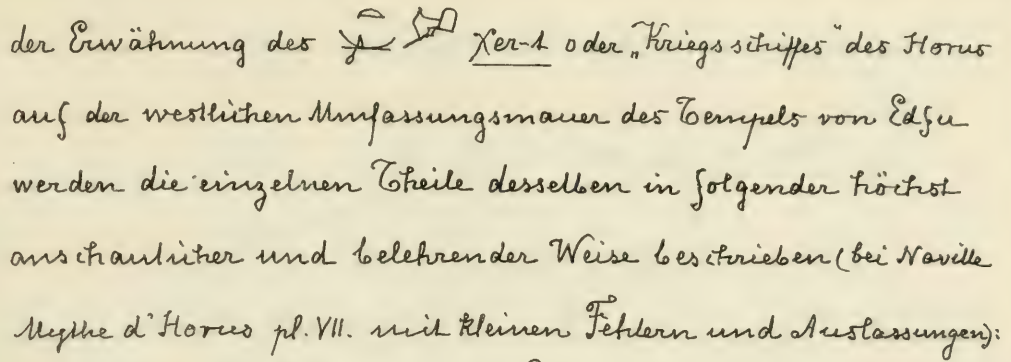 der Erwähnung des χer-t oder „Kriegsschiffes" des Horus
auf der westlichen Umfassungsmauer des Tempels von Edfu
werden die einzelnen Theile desselben in folgender höchst
anschaulicher und belehrender Weise beschrieben (bei Naville
Mythe d'Horus pl. VII. mit kleinen Fehlern und Auslassungen):